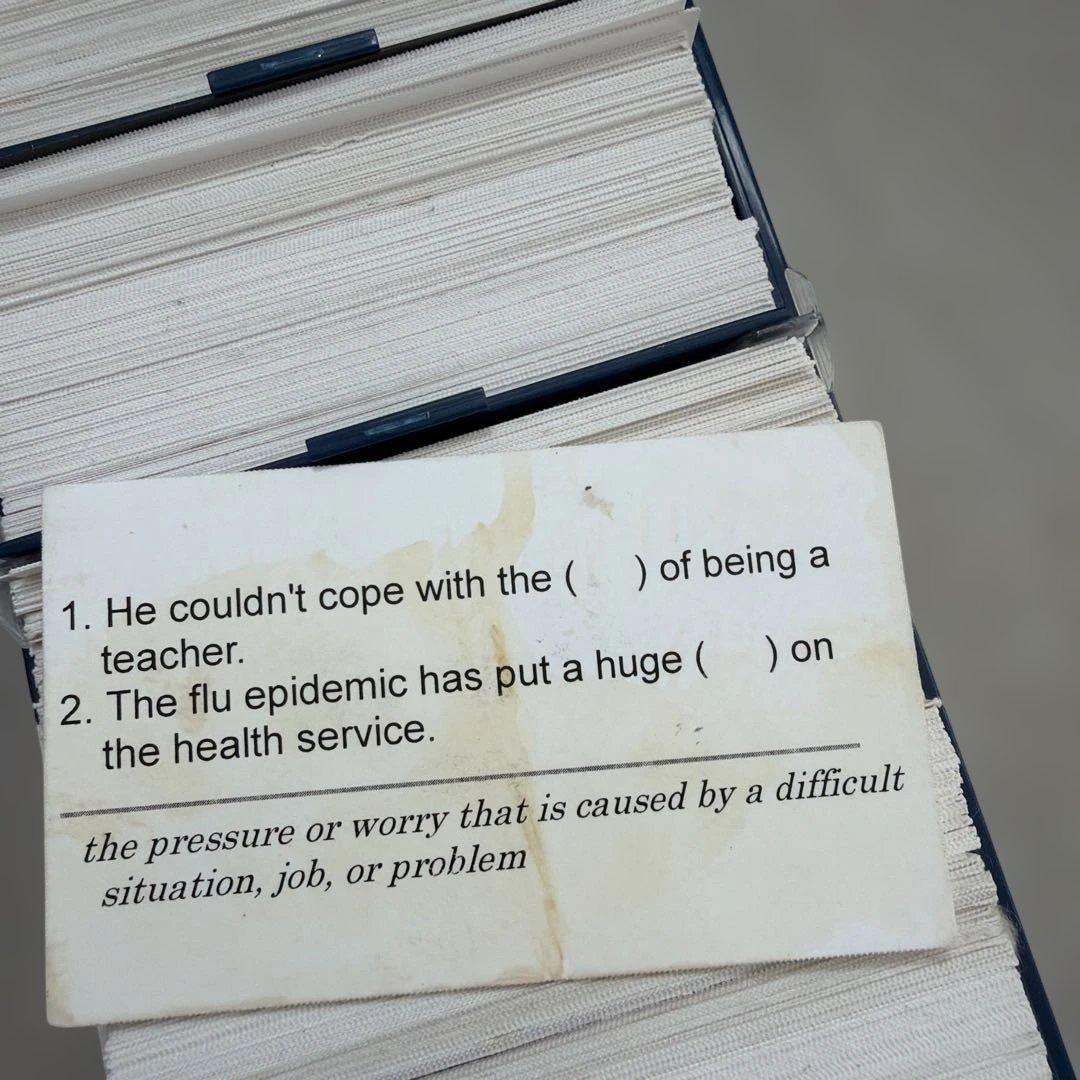 1. He couldn't cope with the (     ) of being a
teacher.
2. The flu epidemic has put a huge (     ) on
the health service.
the pressure or worry that is caused by a difficult
situation, job, or problem